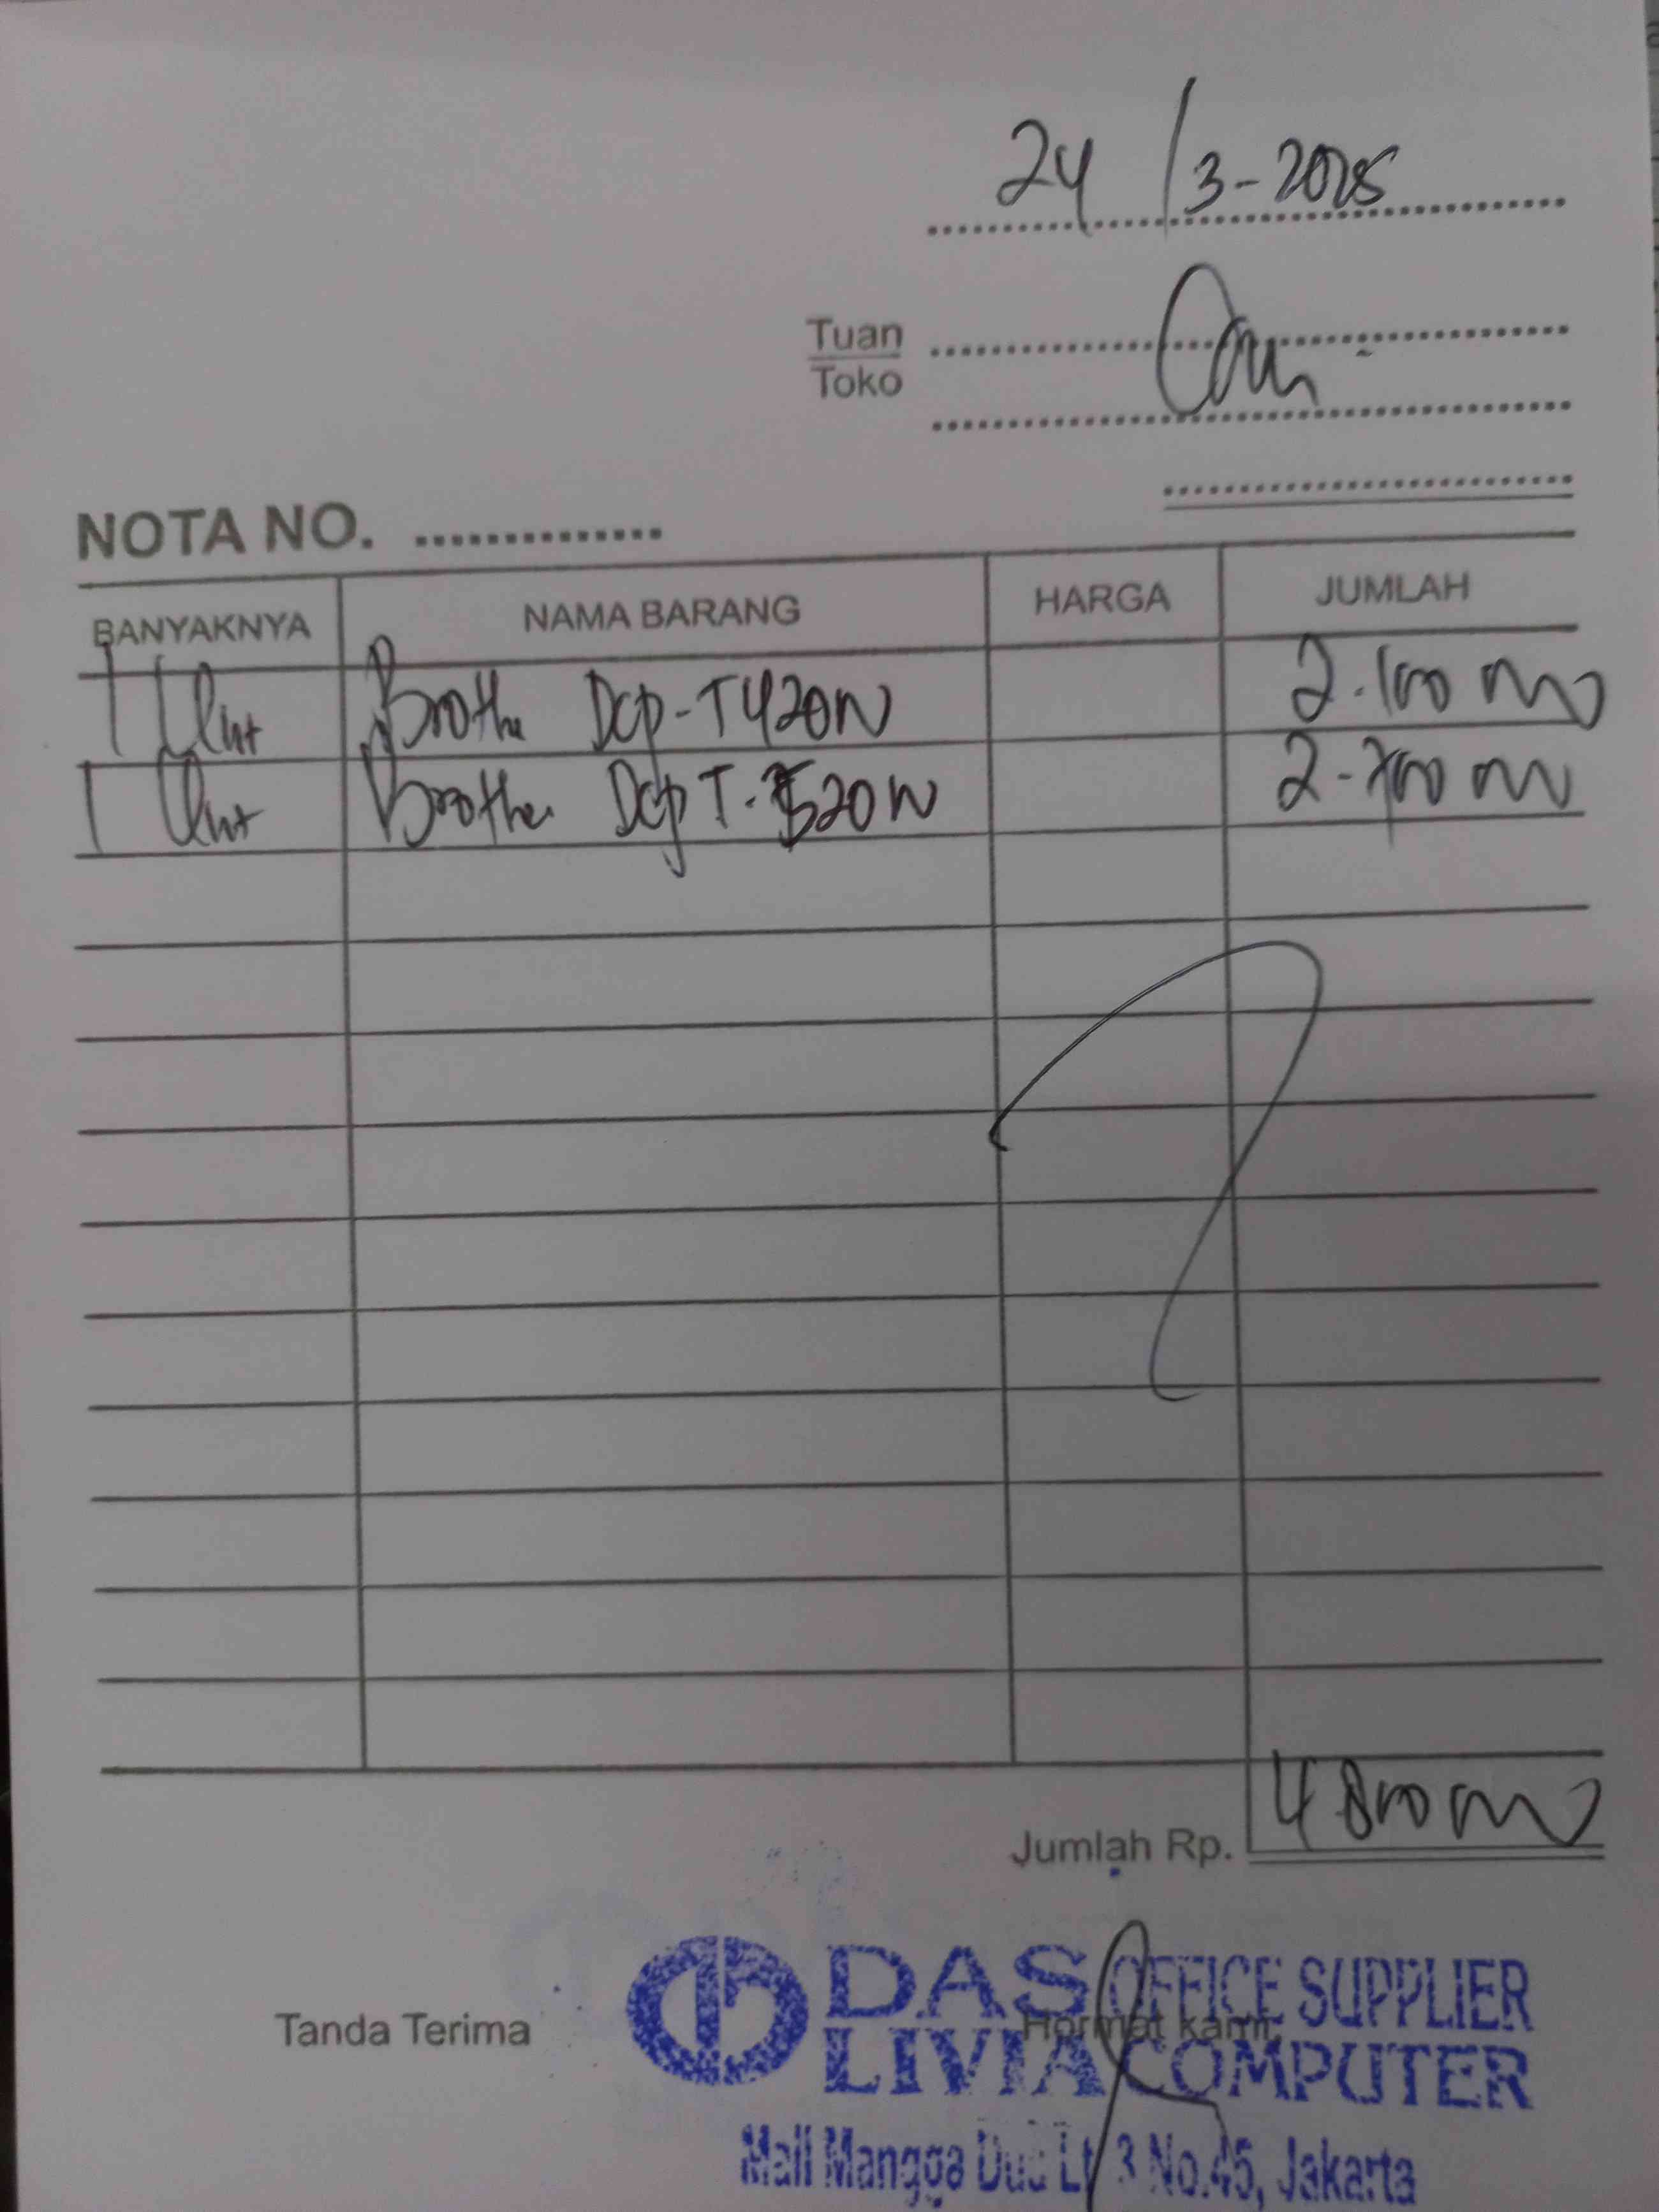 24/3-2025
Tuan
Toko
NOTA NO. ..............
BANYAKNYA NAMA BARANG HARGA JUMLAH
1 Unit Brother Dcp-T420W 2.100 000
1 Unit Brother Dcp T-520W 2-700 000
Jumlah Rp. 4.800 000
Tanda Terima Hormat kami,
DAS OFFICE SUPPLIER
LIVIA COMPUTER
Mall Mangga Dua Lt 3 No.45, Jakarta